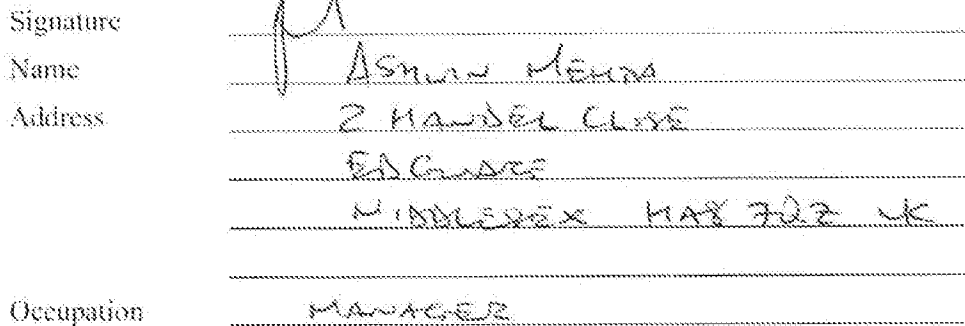 Signature
Name ASHWIN MEHTA
Address 2 HANDEL CLOSE
EDGWARE
MIDDLESEX HA8 7QZ UK
Occupation MANAGER